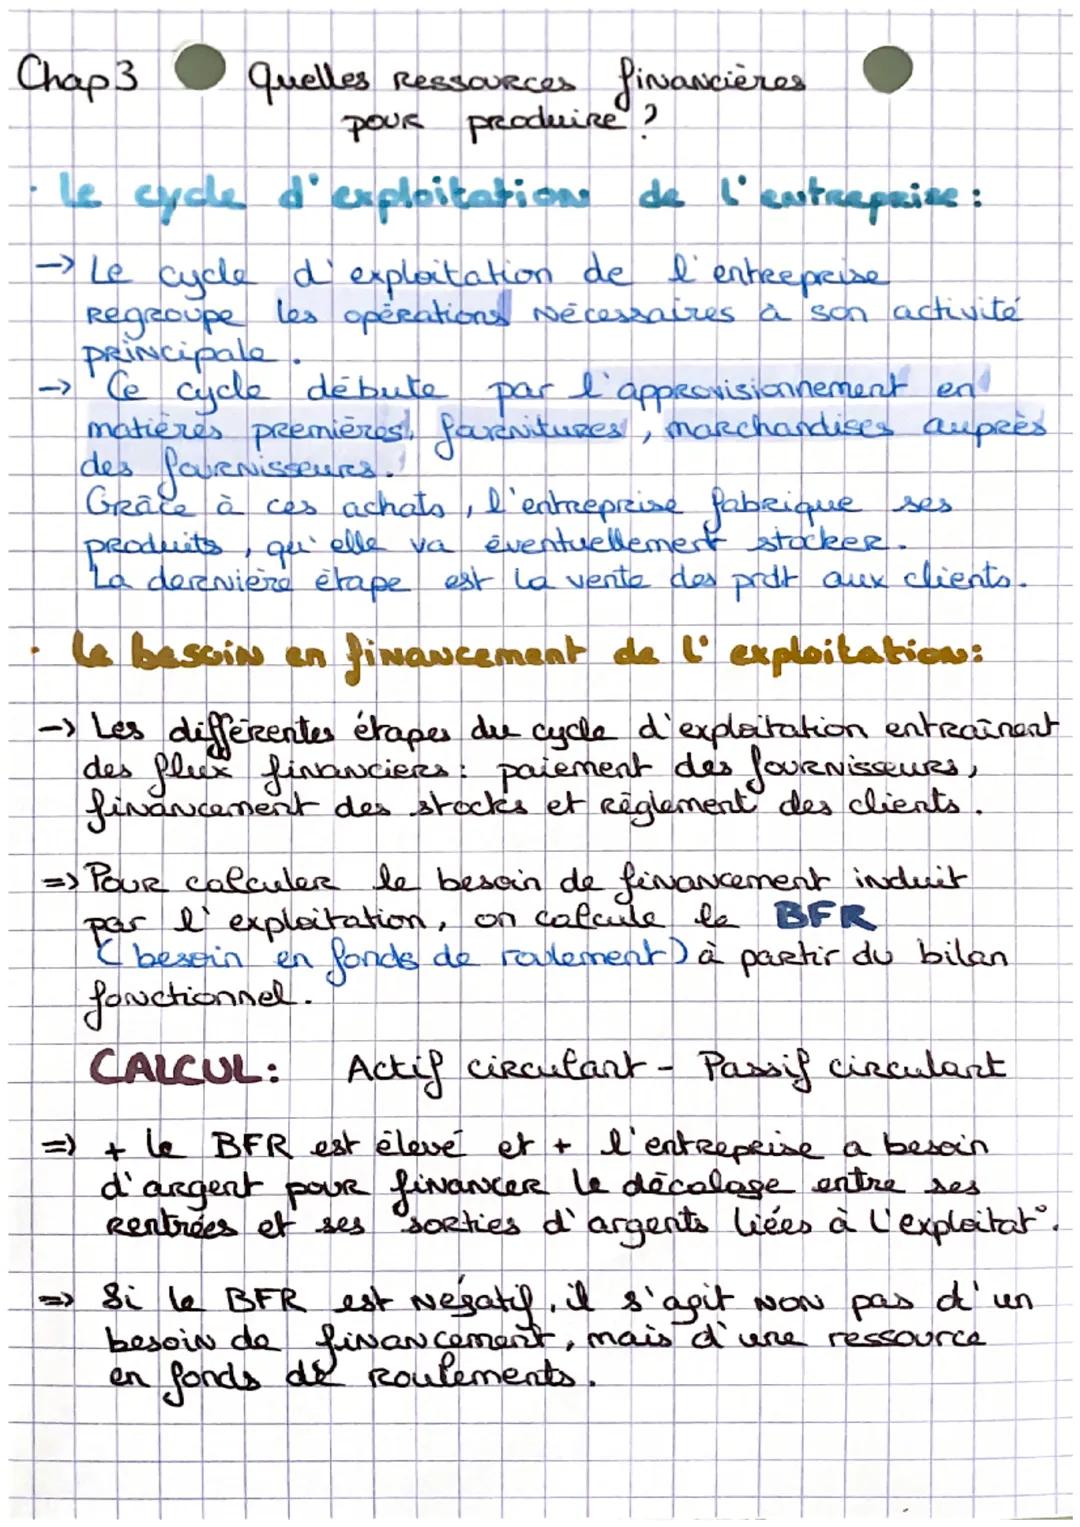 Chap 3 Quelles Ressources financières
pour produire ?
· Le cycle d'exploitation de l'entreprise :
-> Le cycle d'exploitation de l'entreprise
Regroupe les opérations nécessaires à son activité
principale.
-> Ce cycle débute par l'approvisionnement en
matières premières, fournitures, marchandises auprès
des fournisseurs.
Grâce à ces achats, l'entreprise fabrique ses
produits, qu'elle va éventuellement stocker.
La dernière étape est la vente des prdt aux clients.
· Le besoin en financement de l'exploitation :
-> Les différentes étapes du cycle d'exploitation entraînent
des flux financiers : paiement des fournisseurs,
financement des stocks et règlement des clients.
=> Pour calculer le besoin de financement induit
par l'exploitation, on calcule le BFR
(besoin en fonds de roulement) à partir du bilan
fonctionnel.
CALCUL : Actif circulant - Passif circulant
=> + le BFR est élevé et + l'entreprise a besoin
d'argent pour financer le décalage entre ses
Rentrées et ses sorties d'argents liées à l'exploitat°.
=> Si le BFR est négatif, il s'agit non pas d'un
besoin de financement, mais d'une ressource
en fonds de Roulements.